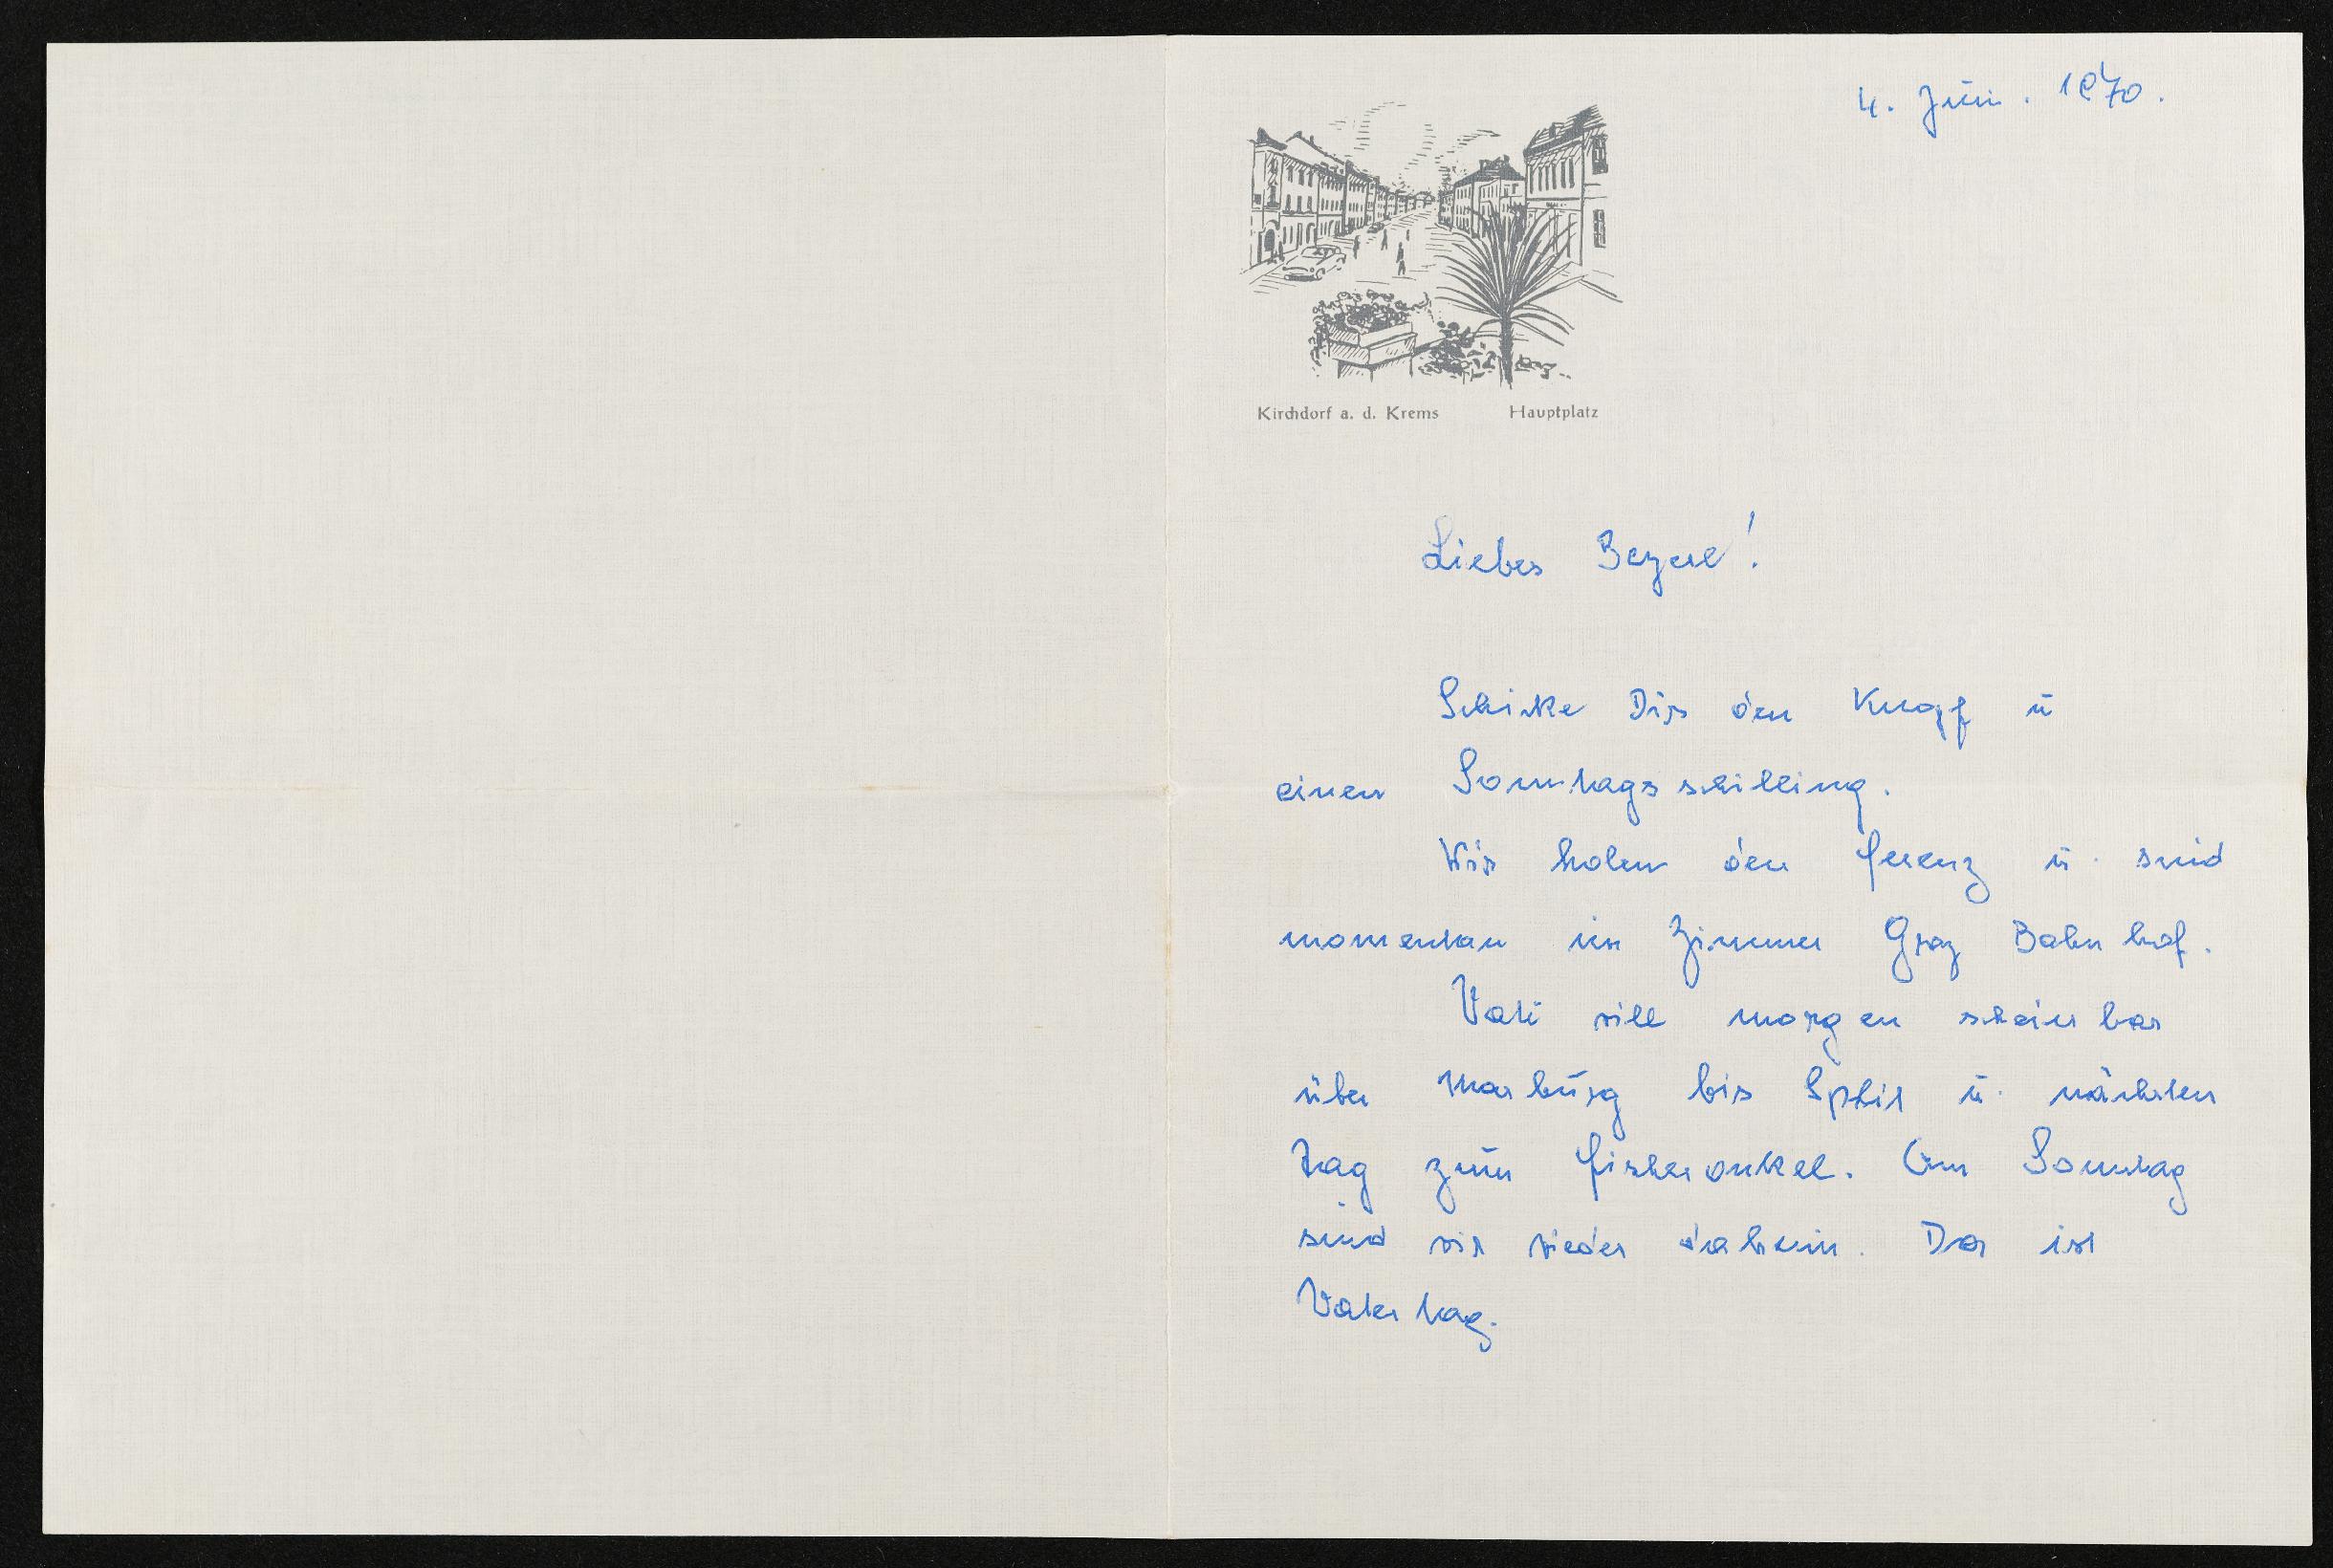 4. Juni. 1970.
Kirchdorf a. d. Krems Hauptplatz
Liebes Bezerl!
Schicke Dir den Knopf u
einen Sonntagsschilling.
Wir holen den Ferenz u. sind
momentan im Zimmer Graz Bahnhof.
Vati will morgen scheinbar
über Marburg bis Split u. nächsten
Tag zum Fischeronkel. Am Sonntag
sind wir wieder daheim. Da ist
Vatertag.